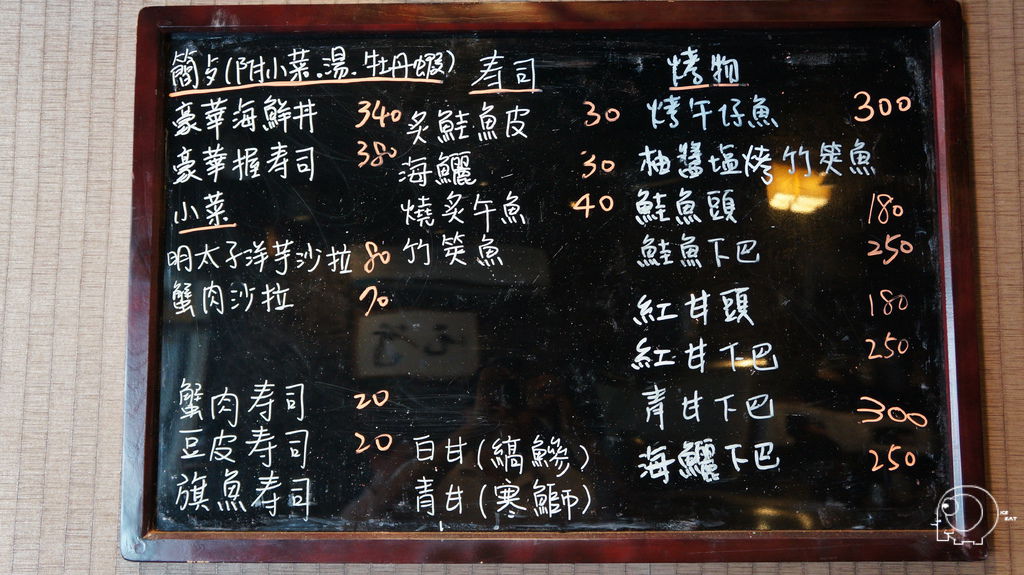 簡歺(附小菜.湯.牡丹蝦)
豪華海鮮丼 340
豪華握寿司 380
小菜
明太子洋芋沙拉 80
蟹肉沙拉 70
蟹肉寿司 20
豆皮寿司 20
旗魚寿司
寿司
炙鮭魚皮 30
海鱺 30
燒炙午魚 40
竹筴魚
白甘(縞鰺)
青甘(寒鰤)
烤物
烤午仔魚 300
柚醬塩烤竹筴魚
鮭魚頭 180
鮭魚下巴 250
紅甘頭 180
紅甘下巴 250
青甘下巴 300
海鱺下巴 250